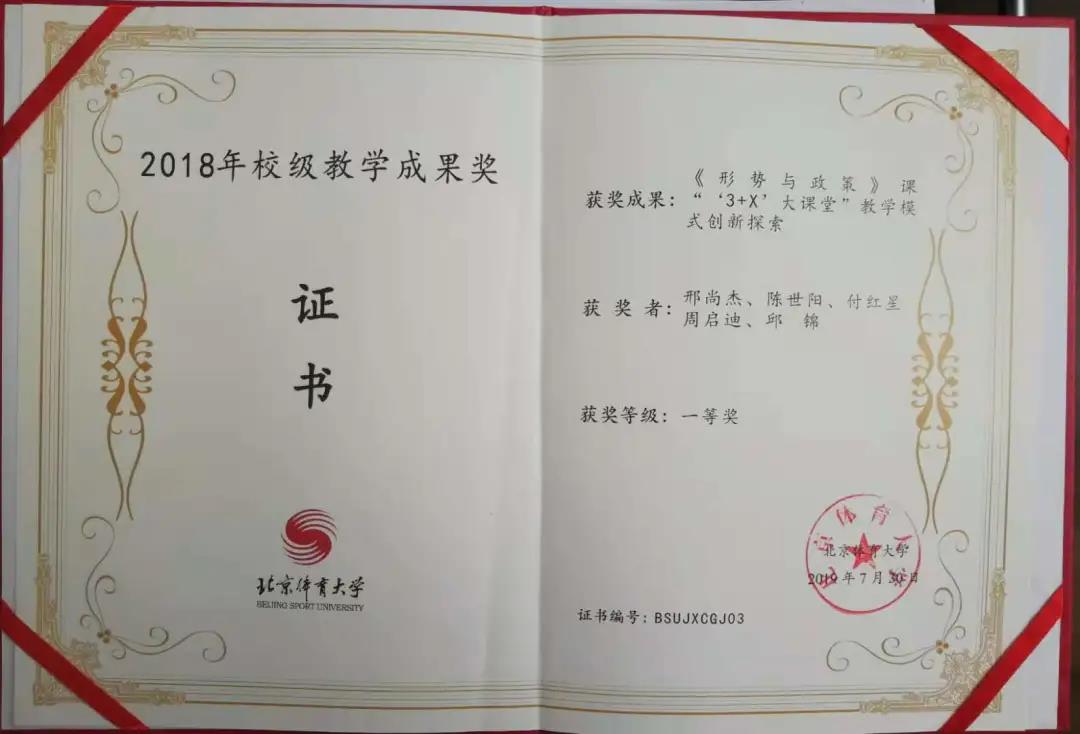 2018年校级教学成果奖
证
书
北京体育大学
BEIJING SPORT UNIVERSITY
获奖成果：《形势与政策》课
“‘3+X’大课堂”教学模
式创新探索
获奖者：邢尚杰、陈世阳、付红星
周启迪、邱　锦
获奖等级：一等奖
北京体育大学
2019年7月30日
证书编号：BSUJXCGJ03